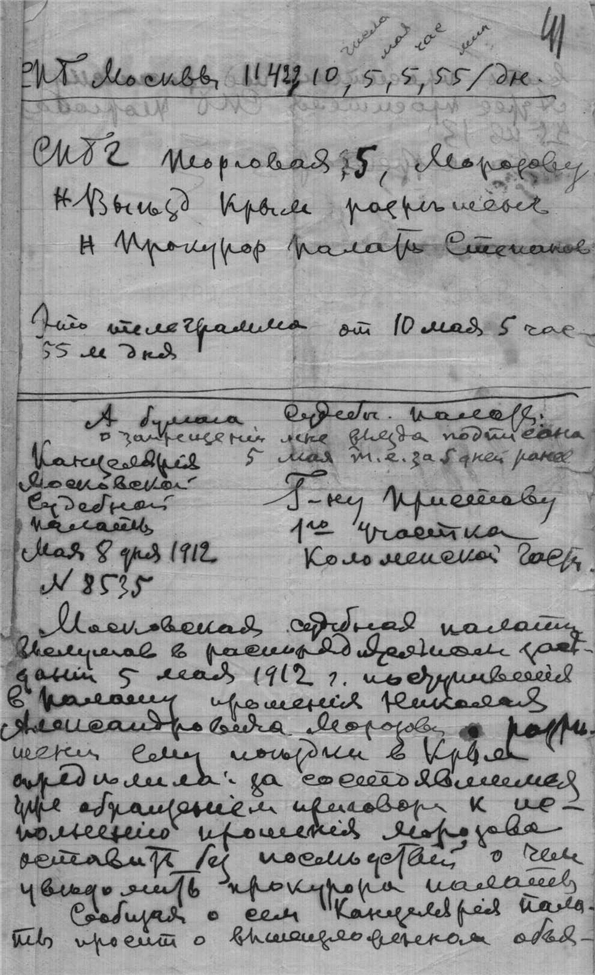 числа мая час мин
41
СПБ Москвы 11422, 10, 5, 5, 55/дн.
СПБ 2 Торговая, 5, Морозову
Н Выезд Крым разрешенъ
Н Прокурор палаты Степанов
Это телеграмма от 10 мая 5 час
55 м дня
А бумага Судебн. палаты.
о запрещеніи мне выезда подписана
5 мая т.е. за 5 дней ранее
Канцелярія
Московской
Судебной
палаты
Мая 8 дня 1912
N 8535
Г-ну Приставу
1го участка
Коломенской части.
Московская судебная палата
выслушав в распорядительном засе-
даніи 5 мая 1912 г. поступившія
в палату прошенія Николая
Александровича Морозова разре-
шеніи ему поездки в Крым
определила: за состоявшимся
уже обращеніем приговора к ис-
полненію прошенія Морозова
оставить без последствій о чем
уведомить прокурора палаты
Сообщая о сем Канцелярія пала-
ты просит о вышеизложенном объя-